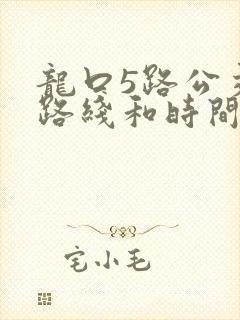 龍口5路公交
路綫和時間
宅小毛